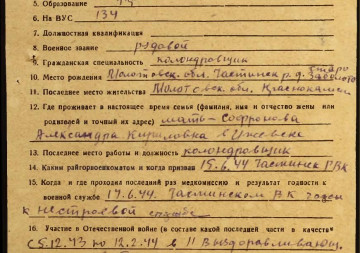 5. Образование
6. На ВУС 134
7. Должностная квалификация
8. Военное звание рядовой
9. Гражданская специальность колондровщик
10. Место рождения Молотовск. обл. Частинск р-д.
11. Последнее место жительства Молотовск. обл. Краснокамск
12. Где проживает в настоящее время семья (фамилия, имя и отчество жены или
родителей и точный их адрес) мать- Софронова
Александра Кириловна в Ижевске
13. Последнее место работы и должность колондровщик
14. Каким райгорвоенкоматом и когда призван 15.6.44 РВК
15. Когда и где проходил последний раз медкомиссию и результат годности к
военной службе 14.6.44. ВК годен
к нестроевой службе
16. Участие в Отечественной войне (в составе какой последней части в качестве
с 5.12.43 по 12.2.44 в 11 Выздоравливающ.